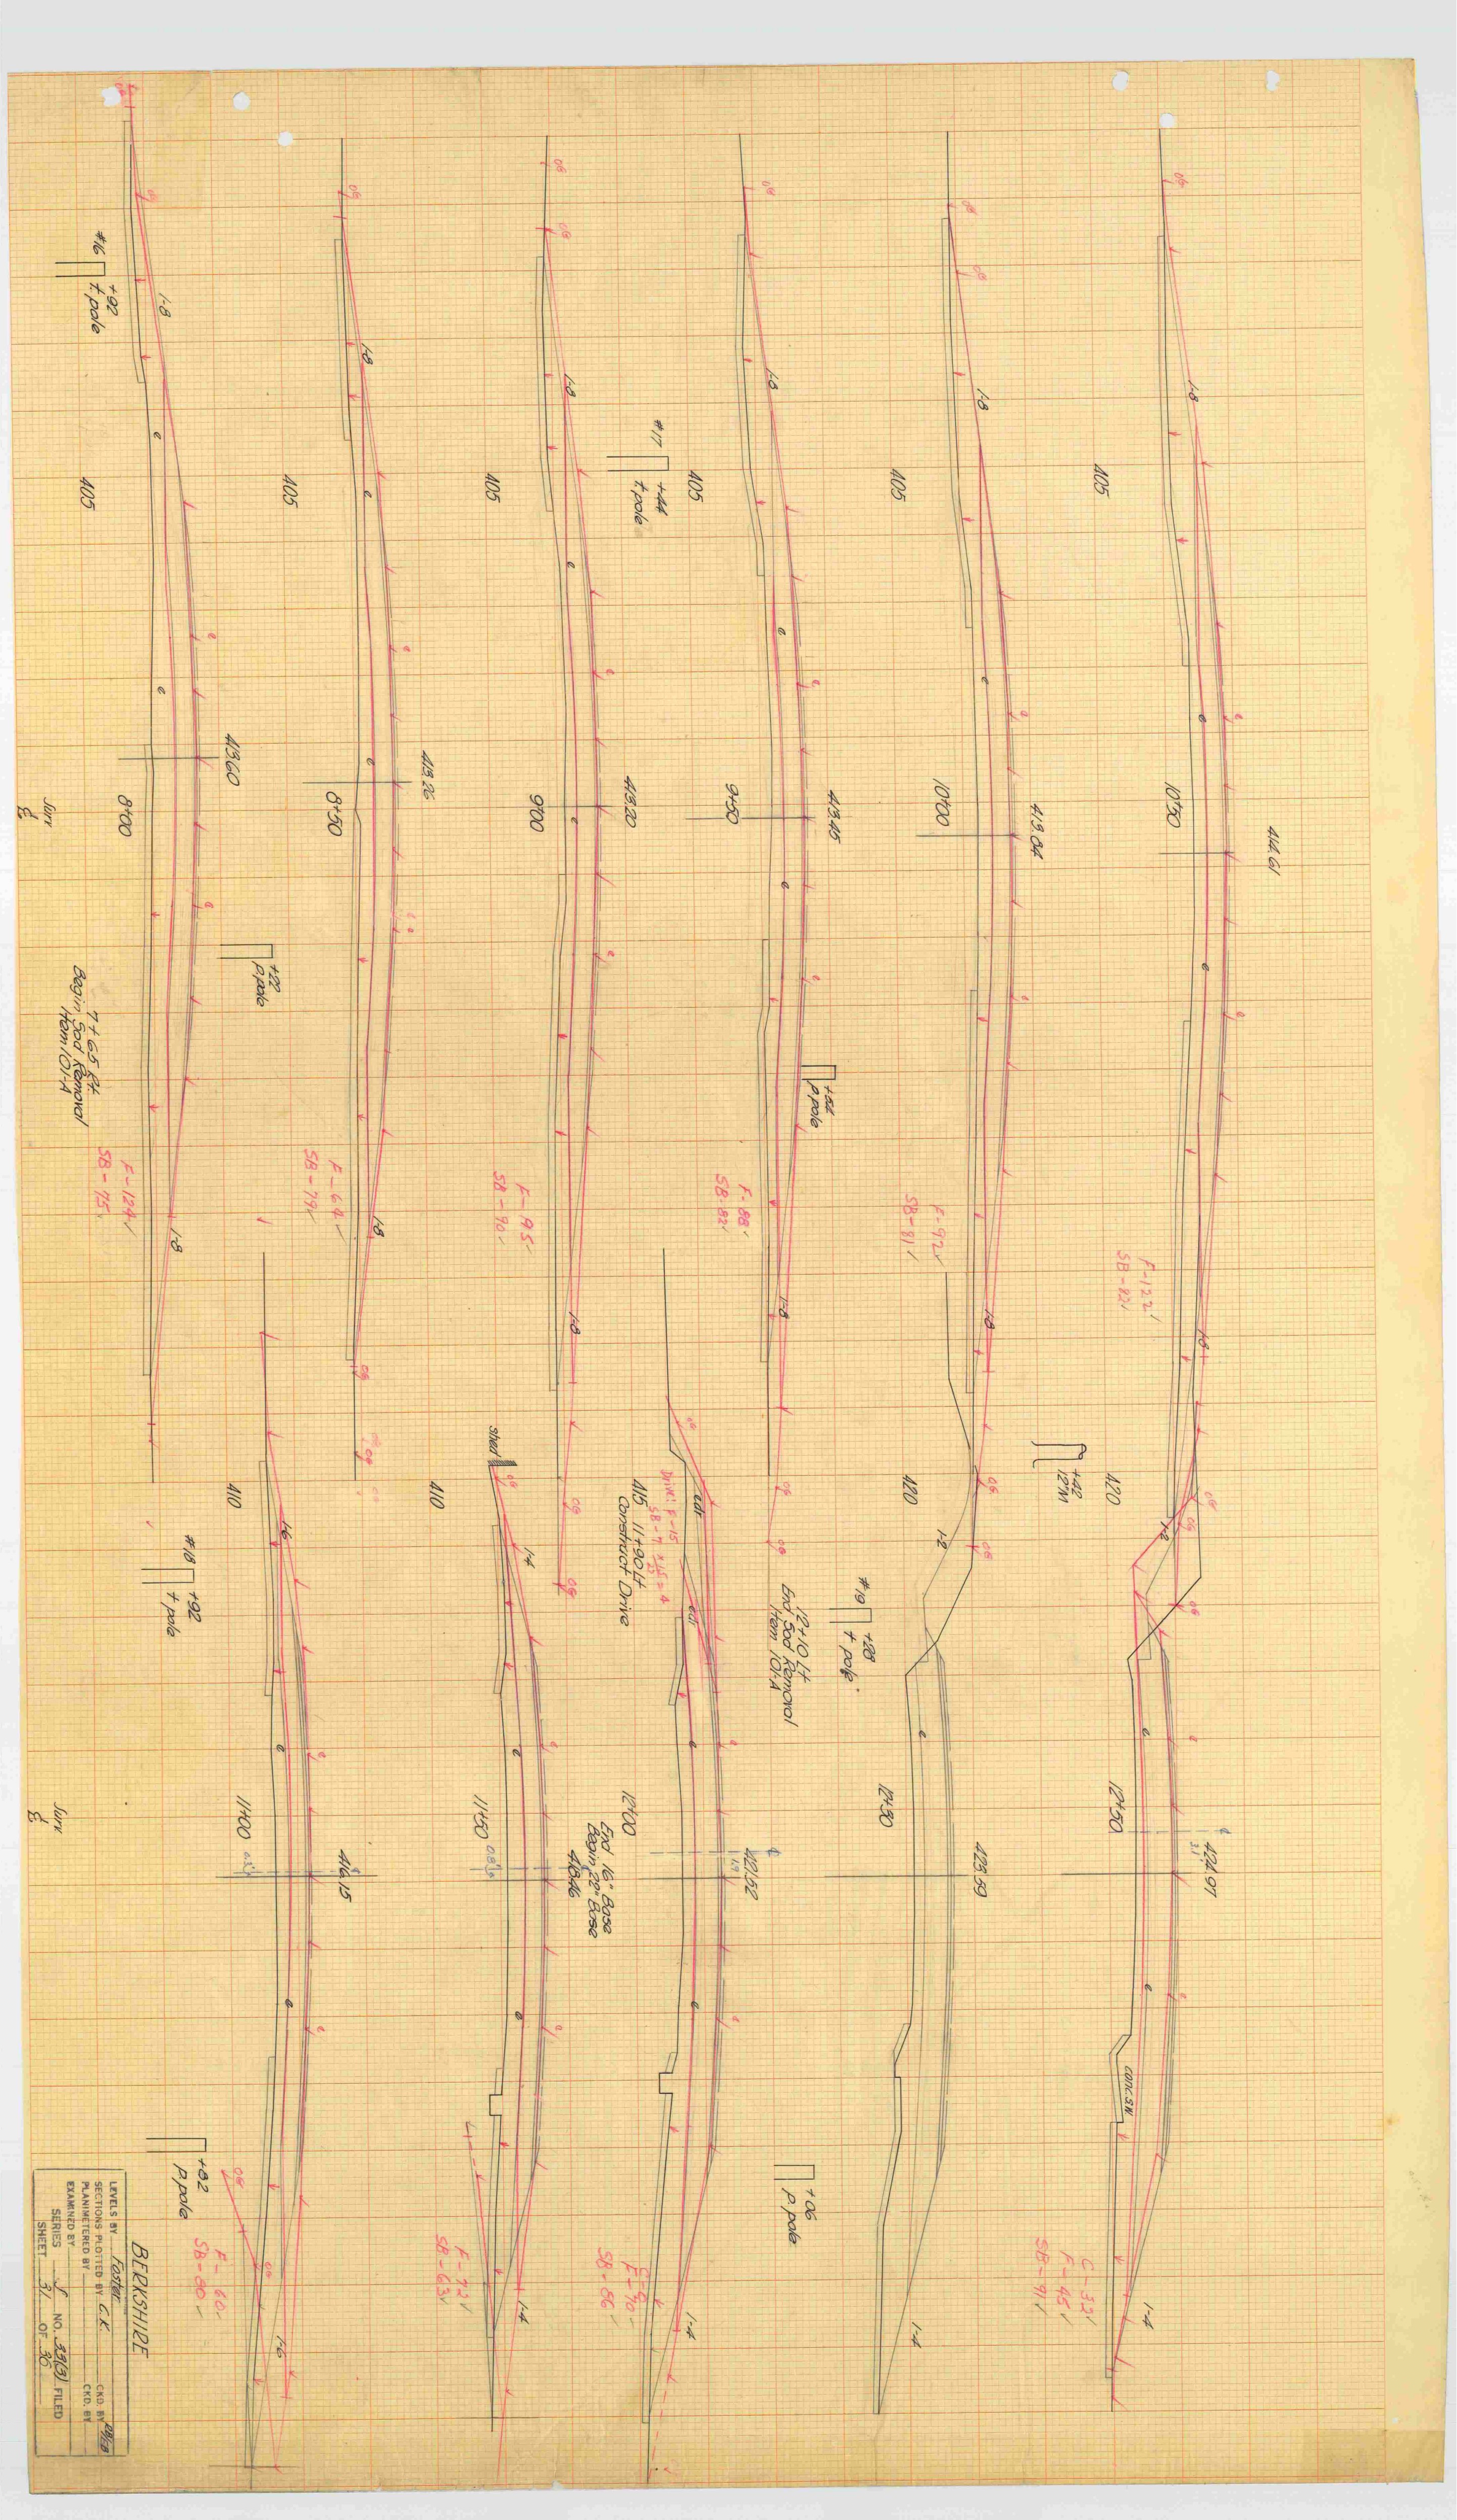 #16
+92
t.pole
1-8
e
405
e
413.60
8+00
Surv
℄
+22
p.pole
7+65 Rt
Begin Sod Removal
Item 101-A
F-129✓
SB-75✓
1-8
1-8
e
405
413.26
e
8+50
F-64✓
SB-79✓
1-8
1-8
405
e
413.20
e
9+00
F-95✓
SB-90✓
1-8
#17
+44
t.pole
1-8
405
e
413.45
9+50
e
+54
p.pole
F-88✓
SB-82✓
1-8
1-8
405
e
413.84
10+00
F-92✓
SB-81✓
1-8
1-8
405
e
414.61
10+50
e
F-122✓
SB-82✓
1-8
410
#18
+92
t.pole
1-6
e
416.15
11+00
Surv
℄
e
+82
p.pole
F-60✓
SB-80✓
1-6
shed
410
1-4
e
418.46
11+50
e
F-72✓
SB-63✓
1-4
415
11+90 Lt
Construct Drive
Drive: F-15
edr
edr
12+10 Lt
End Sod Removal
Item 101-A
e
422.52
12+00
End 16" Base
Begin 22" Base
e
+06
p.pole
F-70✓
SB-86✓
1-4
420
1-2
#19
+28
t.pole
e
423.59
12+30
1-4
+42
12"M
420
1-2
e
424.97
12+50
℄
e
conc. S.W.
C-32✓
F-45✓
SB-91✓
1-4
BERKSHIRE
LEVELS BY Foster
SECTIONS PLOTTED BY C.K. CKD. BY
PLANIMETERED BY CKD. BY
EXAMINED BY
SERIES NO. 39(3) FILED
SHEET 31 OF 36